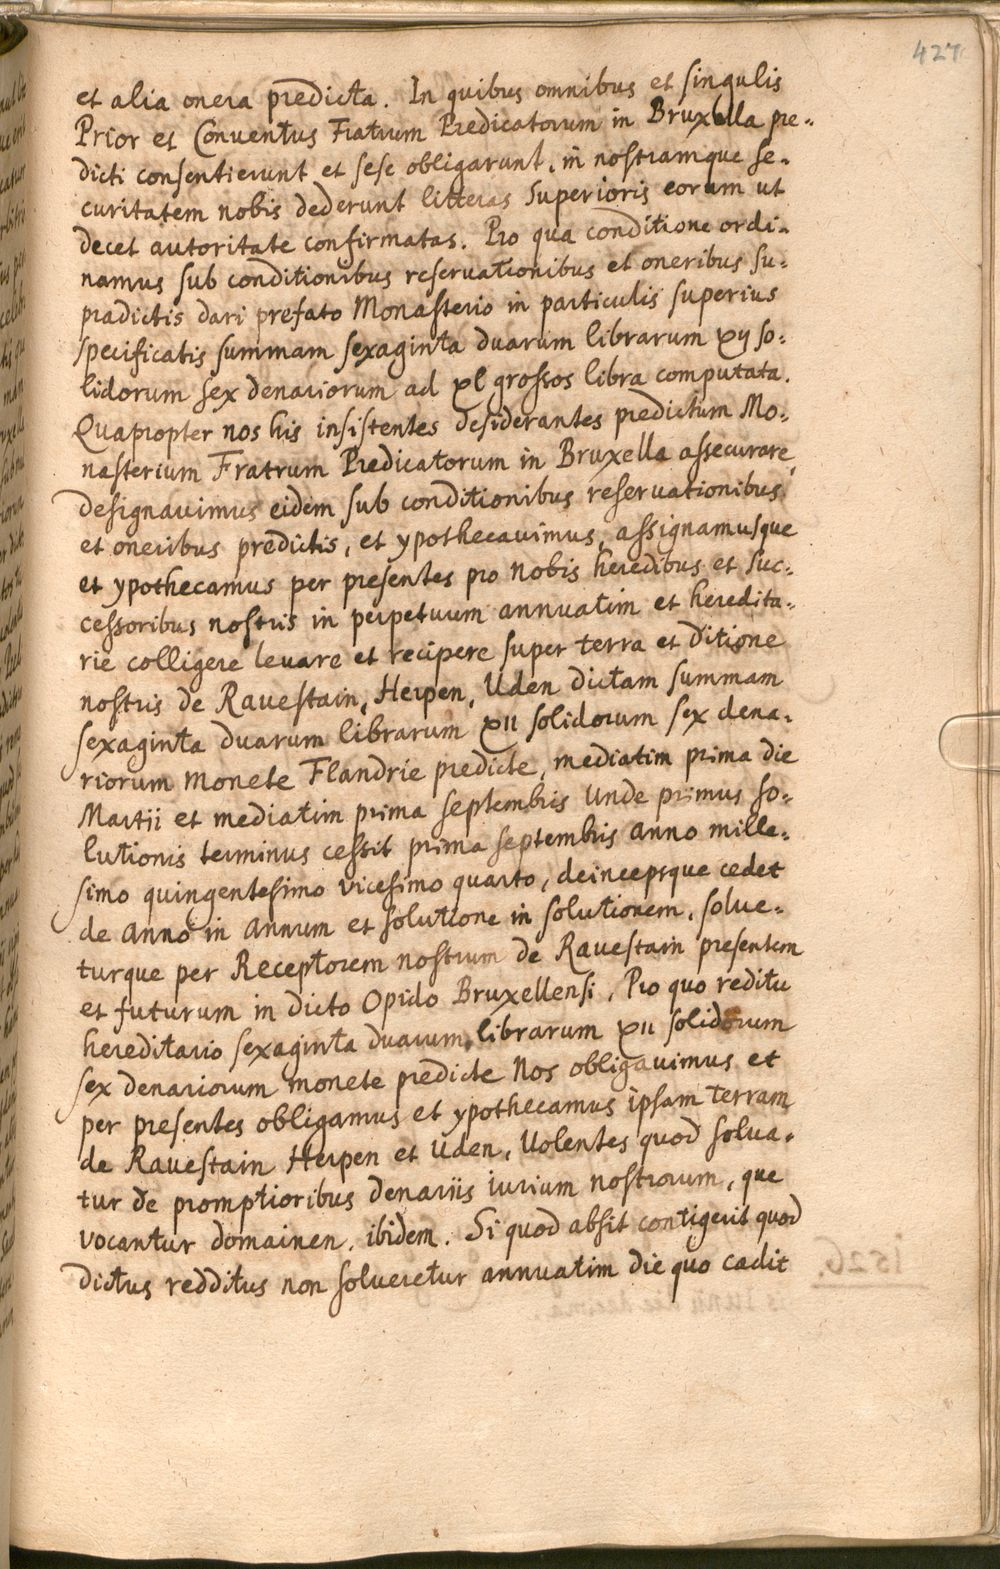 427
et alia onera predicta. In quibus omnibus et singulis
Prior et Conventus Fratrum Predicatorum in Bruxella pre-
dicti consentierunt et sese obligarunt, in nostramque se-
curitatem nobis dederunt litteras Superioris eorum ut
decet autoritate confirmatas. Pro qua conditione ordi-
namus sub conditionibus reservationibus et oneribus su-
pradictis dari prefato Monasterio in particulis superius
specificatis summam sexaginta duarum librarum xij so-
lidorum sex denariorum ad xl grossos libra computata.
Quapropter nos his insistentes desiderantes predictum Mo-
nasterium Fratrum Predicatorum in Bruxella assecurare,
designavimus eidem sub conditionibus reservationibus
et oneribus predictis, et ypothecavimus, assignamusque
et ypothecamus per presentes pro nobis heredibus et suc-
cessoribus nostris in perpetuum annuatim et heredita-
rie colligere levare et recipere super terra et ditione
nostris de Ravestain, Herpen, Uden dictam summam
sexaginta duarum librarum xii solidorum sex dena-
riorum monete Flandrie predicte, mediatim prima die
Martii et mediatim prima septembris Unde primus so-
lutionis terminus cessit prima septembris anno mille-
simo quingentesimo vicesimo quarto, deincepsque cedet
de anno in annum et solutione in solutionem, solve-
turque per Receptorem nostrum de Ravestain presentem
et futurum in dicto Opido Bruxellensi, Pro quo reditu
hereditario sexaginta duarum, librarum xii solidorum
sex denariorum monete predicte Nos obligavimus et
per presentes obligamus et ypothecamus ipsam terram
de Ravestain Herpen et Uden, Uolentes quod solva-
tur de promptioribus denariis iurium nostrorum, que
vocantur domainen, ibidem. Si quod absit contigerit quod
dictus redditus non solveretur annuatim die quo cadit